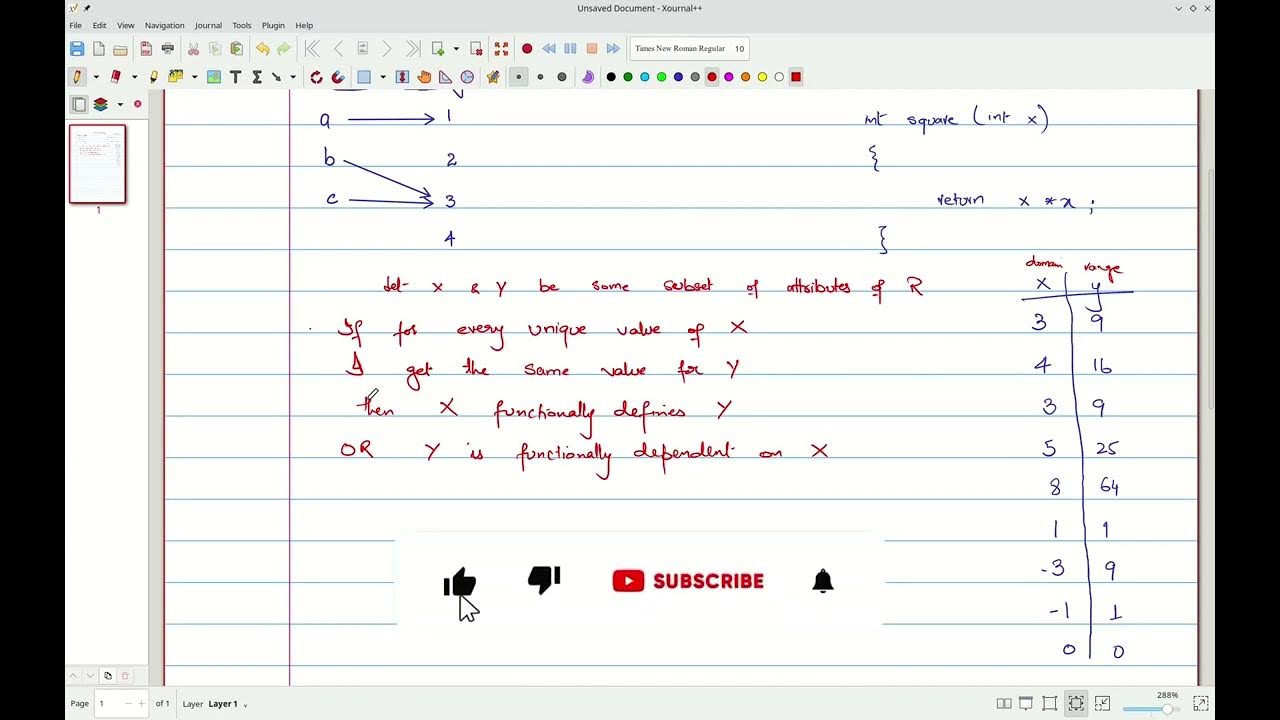 Unsaved Document - Xournal++
File Edit View Navigation Journal Tools Plugin Help
Times New Roman Regular 10
a 1
b 2
c 3
4
int square (int x)
{
return x * x ;
}
Let X & Y be some subset of attributes of R
If for every unique value of X
I get the same value for Y
then X functionally defines Y
OR Y is functionally dependent on X
domain range
X y
3 9
4 16
3 9
5 25
8 64
1 1
-3 9
-1 1
0 0
SUBSCRIBE
1
Page 1 of 1 Layer Layer 1
288%